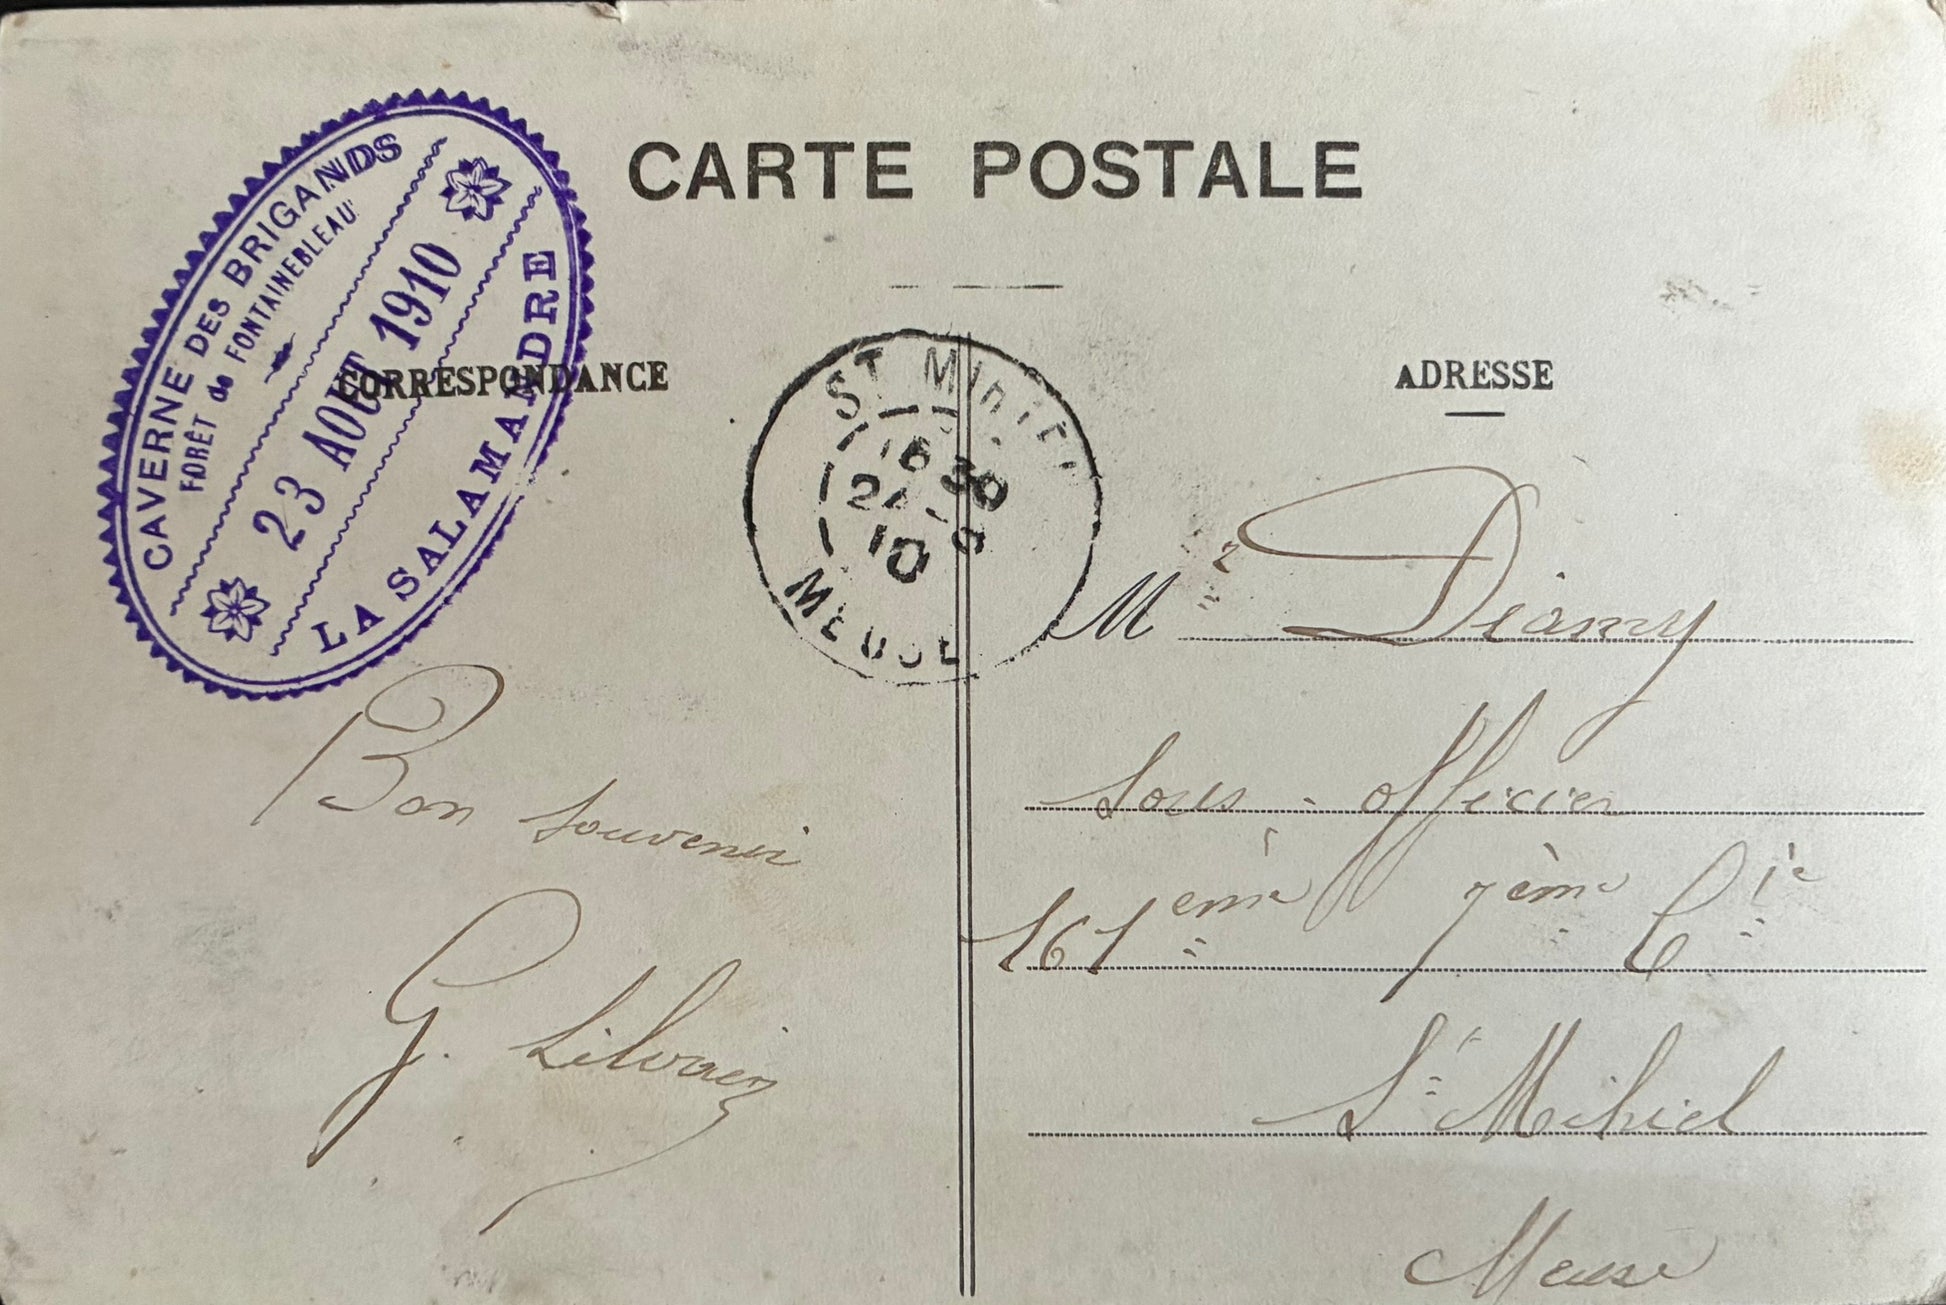 CARTE POSTALE
CAVERNE DES BRIGANDS
FORÊT de FONTAINEBLEAU
23 AOUT 1910
LA SALAMANDRE
CORRESPONDANCE
ST MIHIEL
16 30
24 - 8
10
MEUSE
ADRESSE
Bon souvenir
G. Silvain
Mr Diamy
Sous-officier
161ème 7ème Cie
St Mihiel
Meuse